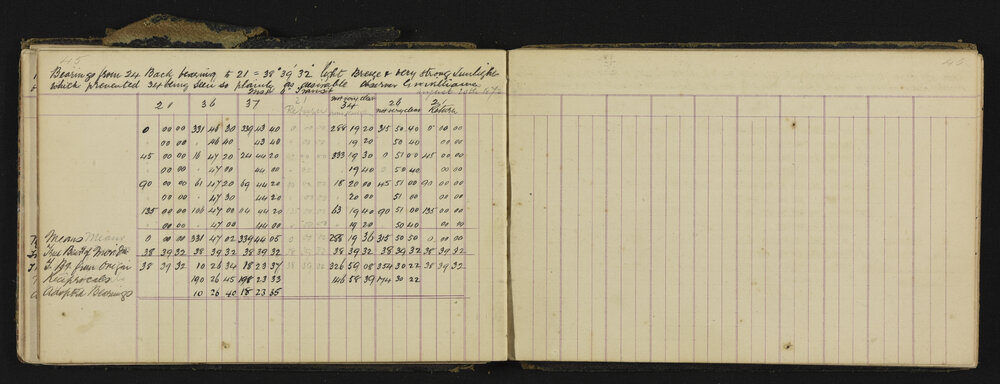 Bearings from 24 Back bearing to 21 = 38° 39' 32" light Breeze & very strong Sunlight
which prevented 34 being seen so plainly as desirable Observer G Williams
August 1872
21 36 37 21 not very clear 34 26 not very clear 21 Return
0 00 00 331 46 30 339 43 40 288 19 20 315 50 40 0 00 00
. 00 00 . 46 40 43 40 19 20 50 40 00 00
45 00 00 16 47 20 24 44 20 333 19 30 0 51 00 45 00 00
00 00 . 47 00 44 00 . 19 40 0 50 40 00 00
90 00 00 61 47 20 69 44 20 18 20 00 45 51 00 90 00 00
. 00 00 . 47 30 44 20 . 20 00 51 00 . 00 00
135 00 00 106 47 00 44 20 63 19 40 90 51 00 135 00 00
. 00 00 . 47 00 44 00 . 19 20 50 40 . 00 00
Means 0 00 00 331 47 02 339 44 05 288 19 36 315 50 50 0 00 00
38 39 32 38 39 32 38 39 32 38 39 32 38 39 32 38 39 32
T. Bg. from Origin 38 39 32 10 26 34 18 23 37 326 59 08 354 30 22 38 39 32
Reciprocals 190 26 45 198 23 33 146 58 39 174 30 22
Adopted Bearings 10 26 40 18 23 35